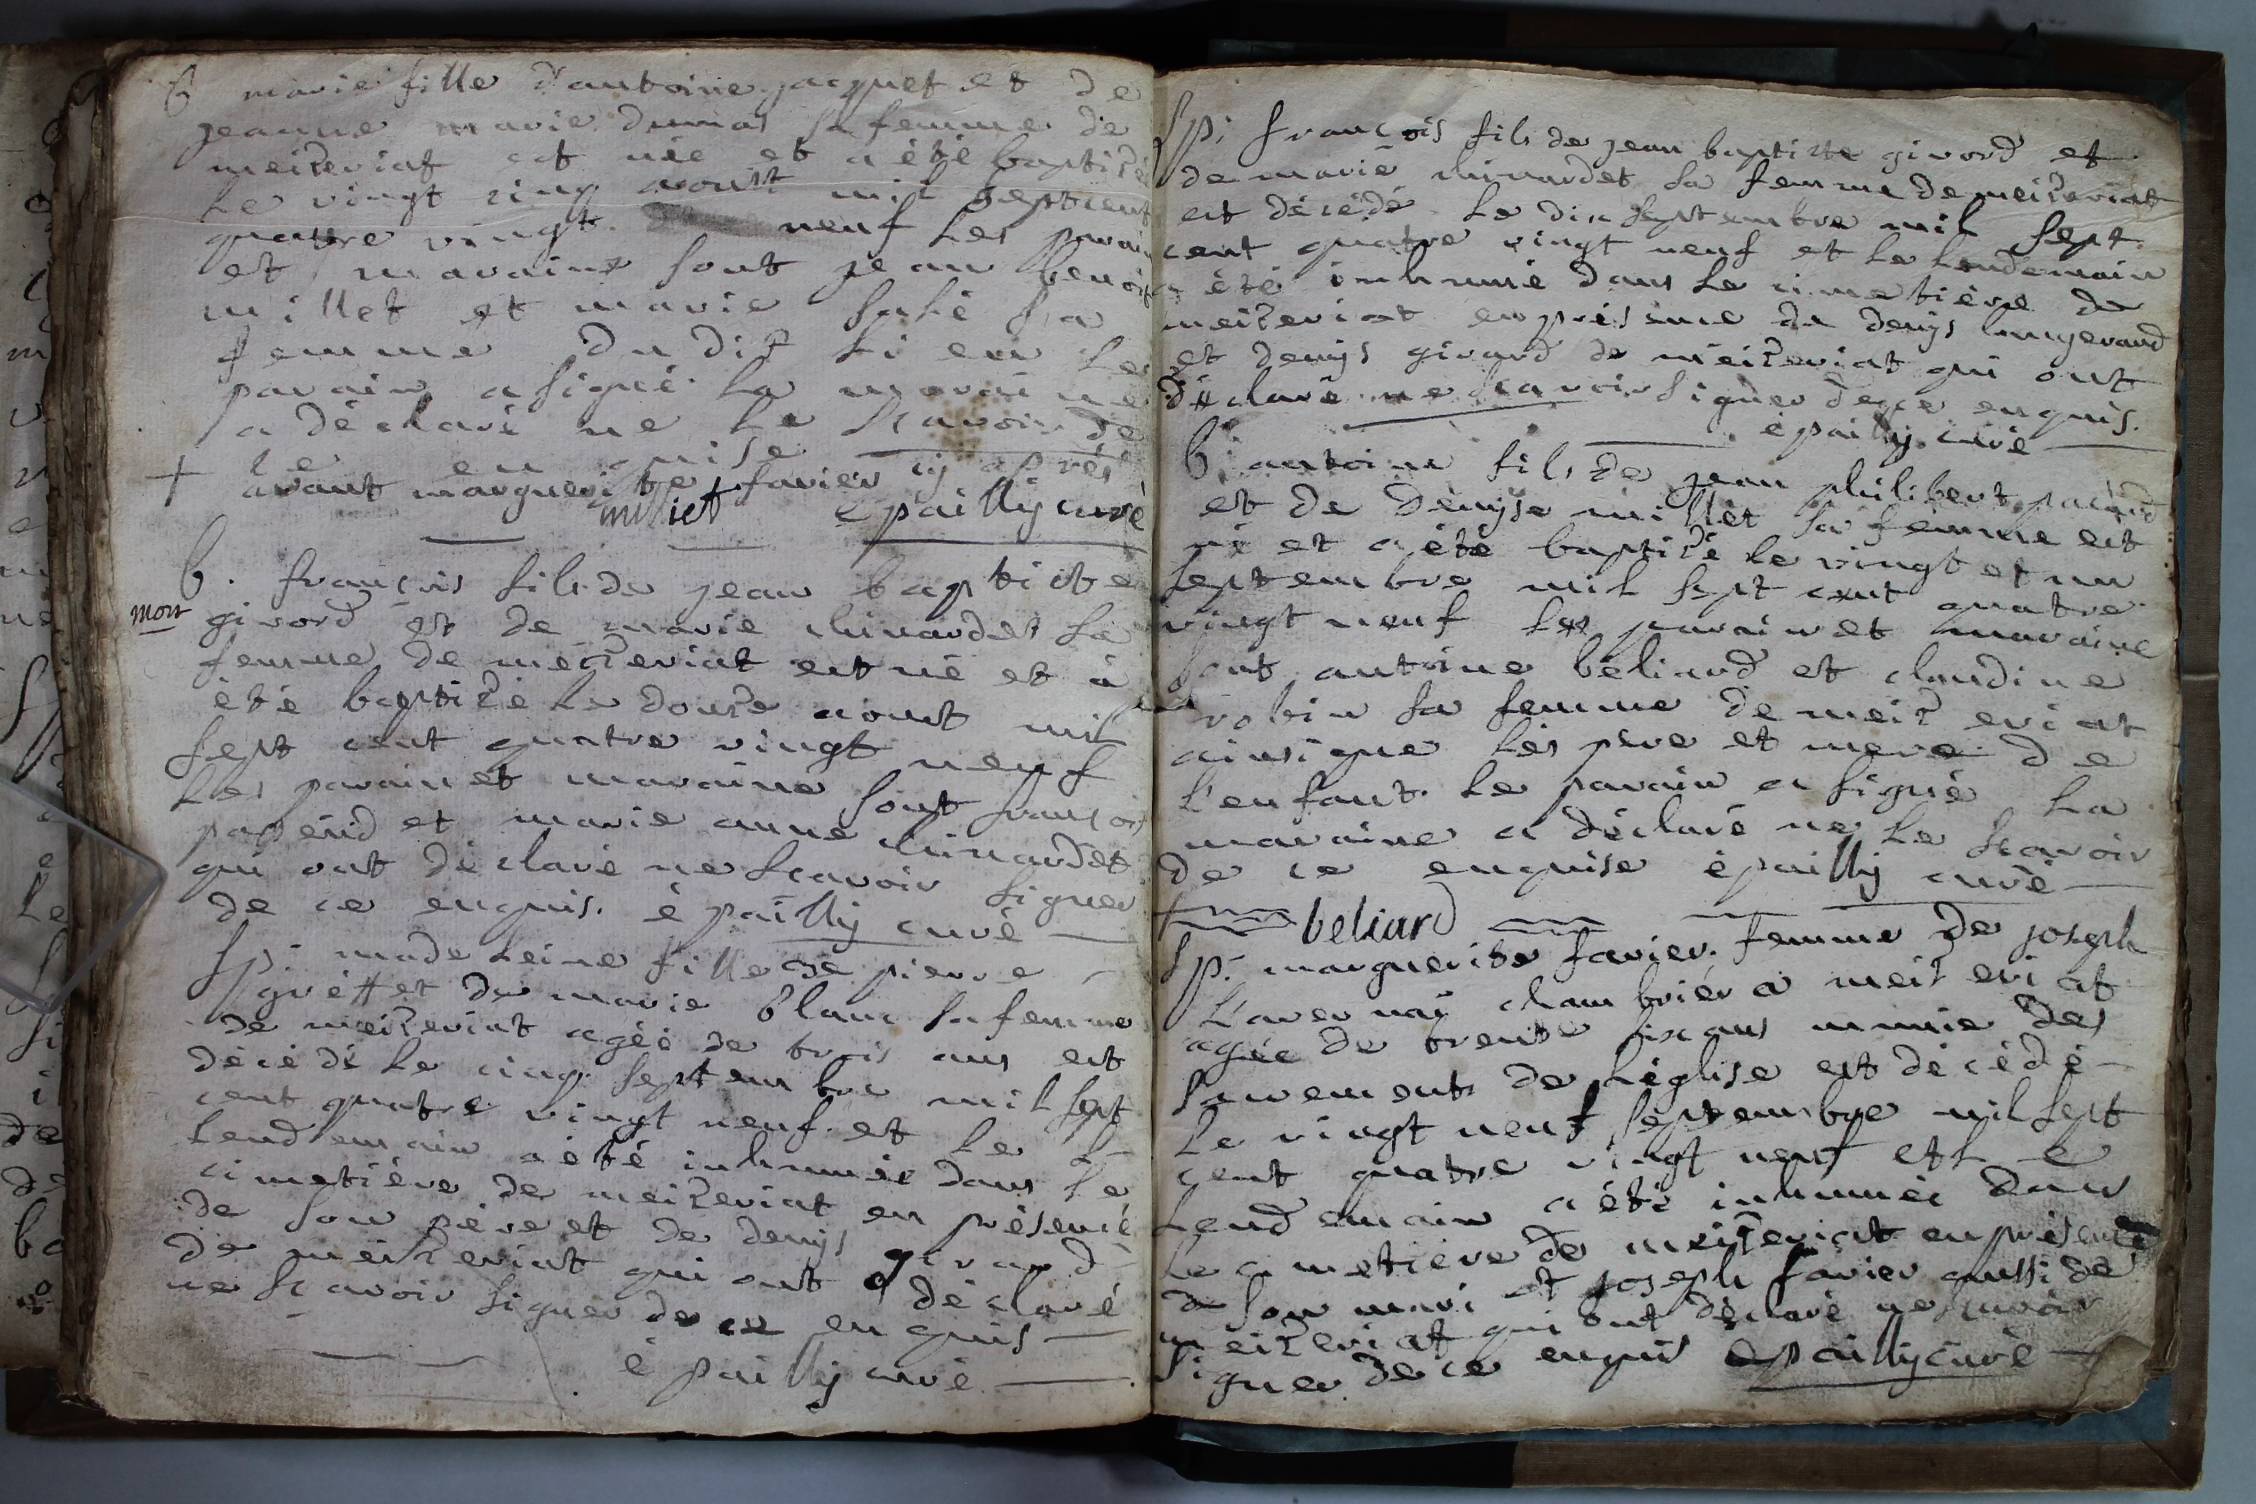 b marie fille d'antoine jacquet et de
jeanne marie dumas sa femme de
meizeriat est née et a été baptizé
le vingt cinq aoust mil septcent
quatre vingt neuf les parain
et maraine sont jean benoit
millet et marie sa
femme du dit lieu le
parain a signé la maraine
a déclaré ne le scavoir de
ce en quise
+ avant marguerite favier cy après
milliet épailly curé
b. françois fils de jean baptiste
mort girord et de marie chinardet sa
femme de meizeriat est né et à
été baptizé le douze aout mil
sept cent quatre vingt neuf
les parain et maraine sont françois
et marie anne chinardet
qui ont déclaré ne scavoir signer
de ce enquis. épailly curé
Sp: madeleine fille de pierre
gréffet de marie blanc sa femme
de meizeriat agéé de trois ans est
décédé le cinq septembre mil sept
cent quatre vingt neuf et le
lendemain a été inhumée dans le
cimetière de meizeriat en présence
de son père et de denys girard
de meizeriat qui ont déclaré
ne scavoir signer de ce enquis
épailly curé
Sp: françois fils de jean baptiste girord et
de marie chinardet sa femme de meizeriat
est décédé le dix septembre mil sept
cent quatre vingt neuf et le lendemain
a été inhumé dans le cimetière de
meizeriat en présence de denys
et denys girard de meizeriat qui ont
déclaré ne scavoir signer de ce enquis.
épailly curé
b: antoine fils de jean philibert
et de denyse milliet sa femme est
né et a été baptizé le vingt et un
septembre mil sept cent quatre
vingt neuf les parain et maraine
sont antoine béliard et claudine
robin sa femme de meizeriat
ainsi que les père et mere de
l'enfant. le parain a signé la
maraine a déclaré ne le scavoir
de ce enquise épailly curé
beliard
Sp: marguerite favier femme de joseph
chambrier a meizeriat
agée de trente six ans munie des
sacrements de l'église est décédé
le vingt neuf septembre mil sept
cent quatre vingt neuf et le
lendemain a été inhumée dans
le cimetière de meizeriat en présence
de son mari et joseph favier aussi de
meizeriat qui ont déclaré ne scavoir
signer de ce enquis épailly curé